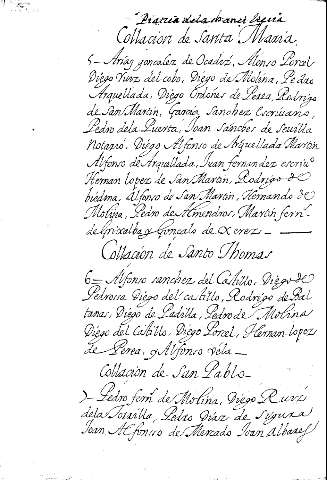 Collacion de Santa Maria
5- Arias gonzalez de Ocadoz, Alonso Porcel
Diego Vierz del cobo, Diego de Molina, Pedro de
Arquellada, Diego Ordones de Perea, Rodrigo
de San Martin, Garcia Sanchez Escrivano,
Pedro dela Puerta, Joan Sanches de Sevilla
Notario, Diego Alfonso de Arquellada Martin
Alfonso de Arquellada, Juan fernandez escriu.º
Hernan lopez de San Martin, Rodrigo de
biedma, Alfonso de San Martin, Hernando de
Molina, Pedro de Hmindros, Martin fern.
de Grixalba y Gonzalo de Xerez.
Collacion de Santo Thomas
6- Alfonso sanchez del Castillo, Diego de
Pedrosa Diego del castillo, Rodrigo de Bal
tanas, Diego de Padilla, Pedro de Molina
Diego del Castillo, Diego Porcel, Hernan lopez
de Perea, y Alfonso Vela
Collacion de San Pablo
7- Pedro fern. de Molina, Diego Ruiz
dela Torrilla, Pedro Diaz de Segura
Joan Alfonso de Mercado Joan Albarez